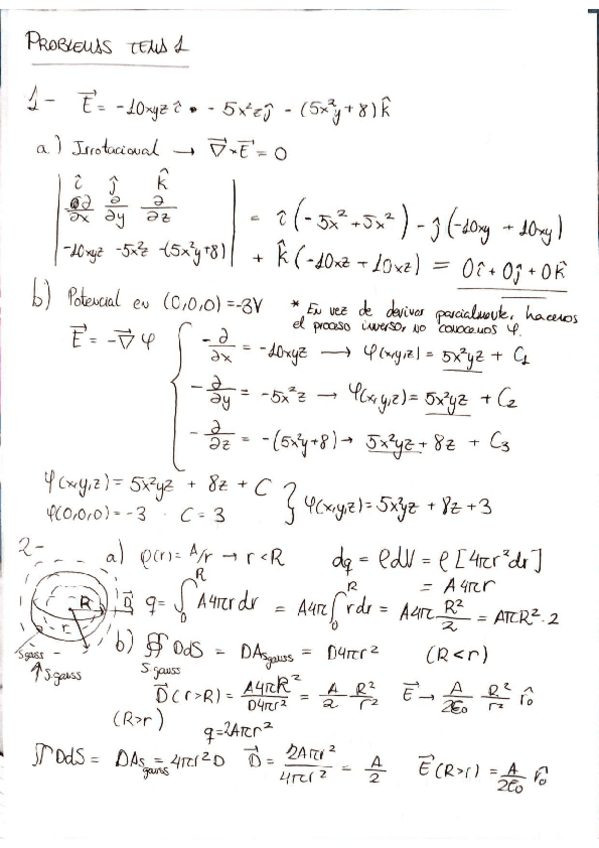 PROBLEMAS TEMA 1
1- E⃗ = -10xyz î - 5x²z ĵ - (5x²y + 8) k̂
a) Irrotacional → ∇⃗×E⃗ = 0
| î ĵ k̂ |
| ∂/∂x ∂/∂y ∂/∂z | = î (-5x² + 5x²) - ĵ (-10xy + 10xy)
| -10xyz -5x²z -(5x²y+8) | + k̂ (-10xz + 10xz) = 0î + 0ĵ + 0k̂
b) Potencial en (0,0,0) = -3V * En vez de derivar parcialmente, hacemos
el proceso inverso, no conocemos φ.
E⃗ = -∇⃗ φ { -∂/∂x = -10xyz → φ(x,y,z) = 5x²yz + C₁
-∂/∂y = -5x²z → φ(x,y,z) = 5x²yz + C₂
-∂/∂z = -(5x²y+8) → 5x²yz + 8z + C₃
φ(x,y,z) = 5x²yz + 8z + C
φ(0,0,0) = -3 · C = 3 } φ(x,y,z) = 5x²yz + 8z + 3
2- a) ρ(r) = A/r → r < R dq = ρdV = ρ [4πr²dr]
= A4πr
R r D⃗ q = ∫₀ᴿ A4πr dr = A4π ∫₀ᴿ r dr = A4π R²/2 = AπR²·2
S.gauss ↑ S.gauss
b) ∯ DdS = DA s.gauss = D4πr² (R < r)
S.gauss
D⃗ (r>R) = A4πR²/D4πr² = A/2 R²/r² E⃗ → A/2ε₀ R²/r² r̂₀
(R>r) q = 2Aπr²
∬ DdS = DAs gauss = 4πr²D D⃗ = 2Aπr²/4πr² = A/2 E⃗ (R>r) = A/2ε₀ r̂₀